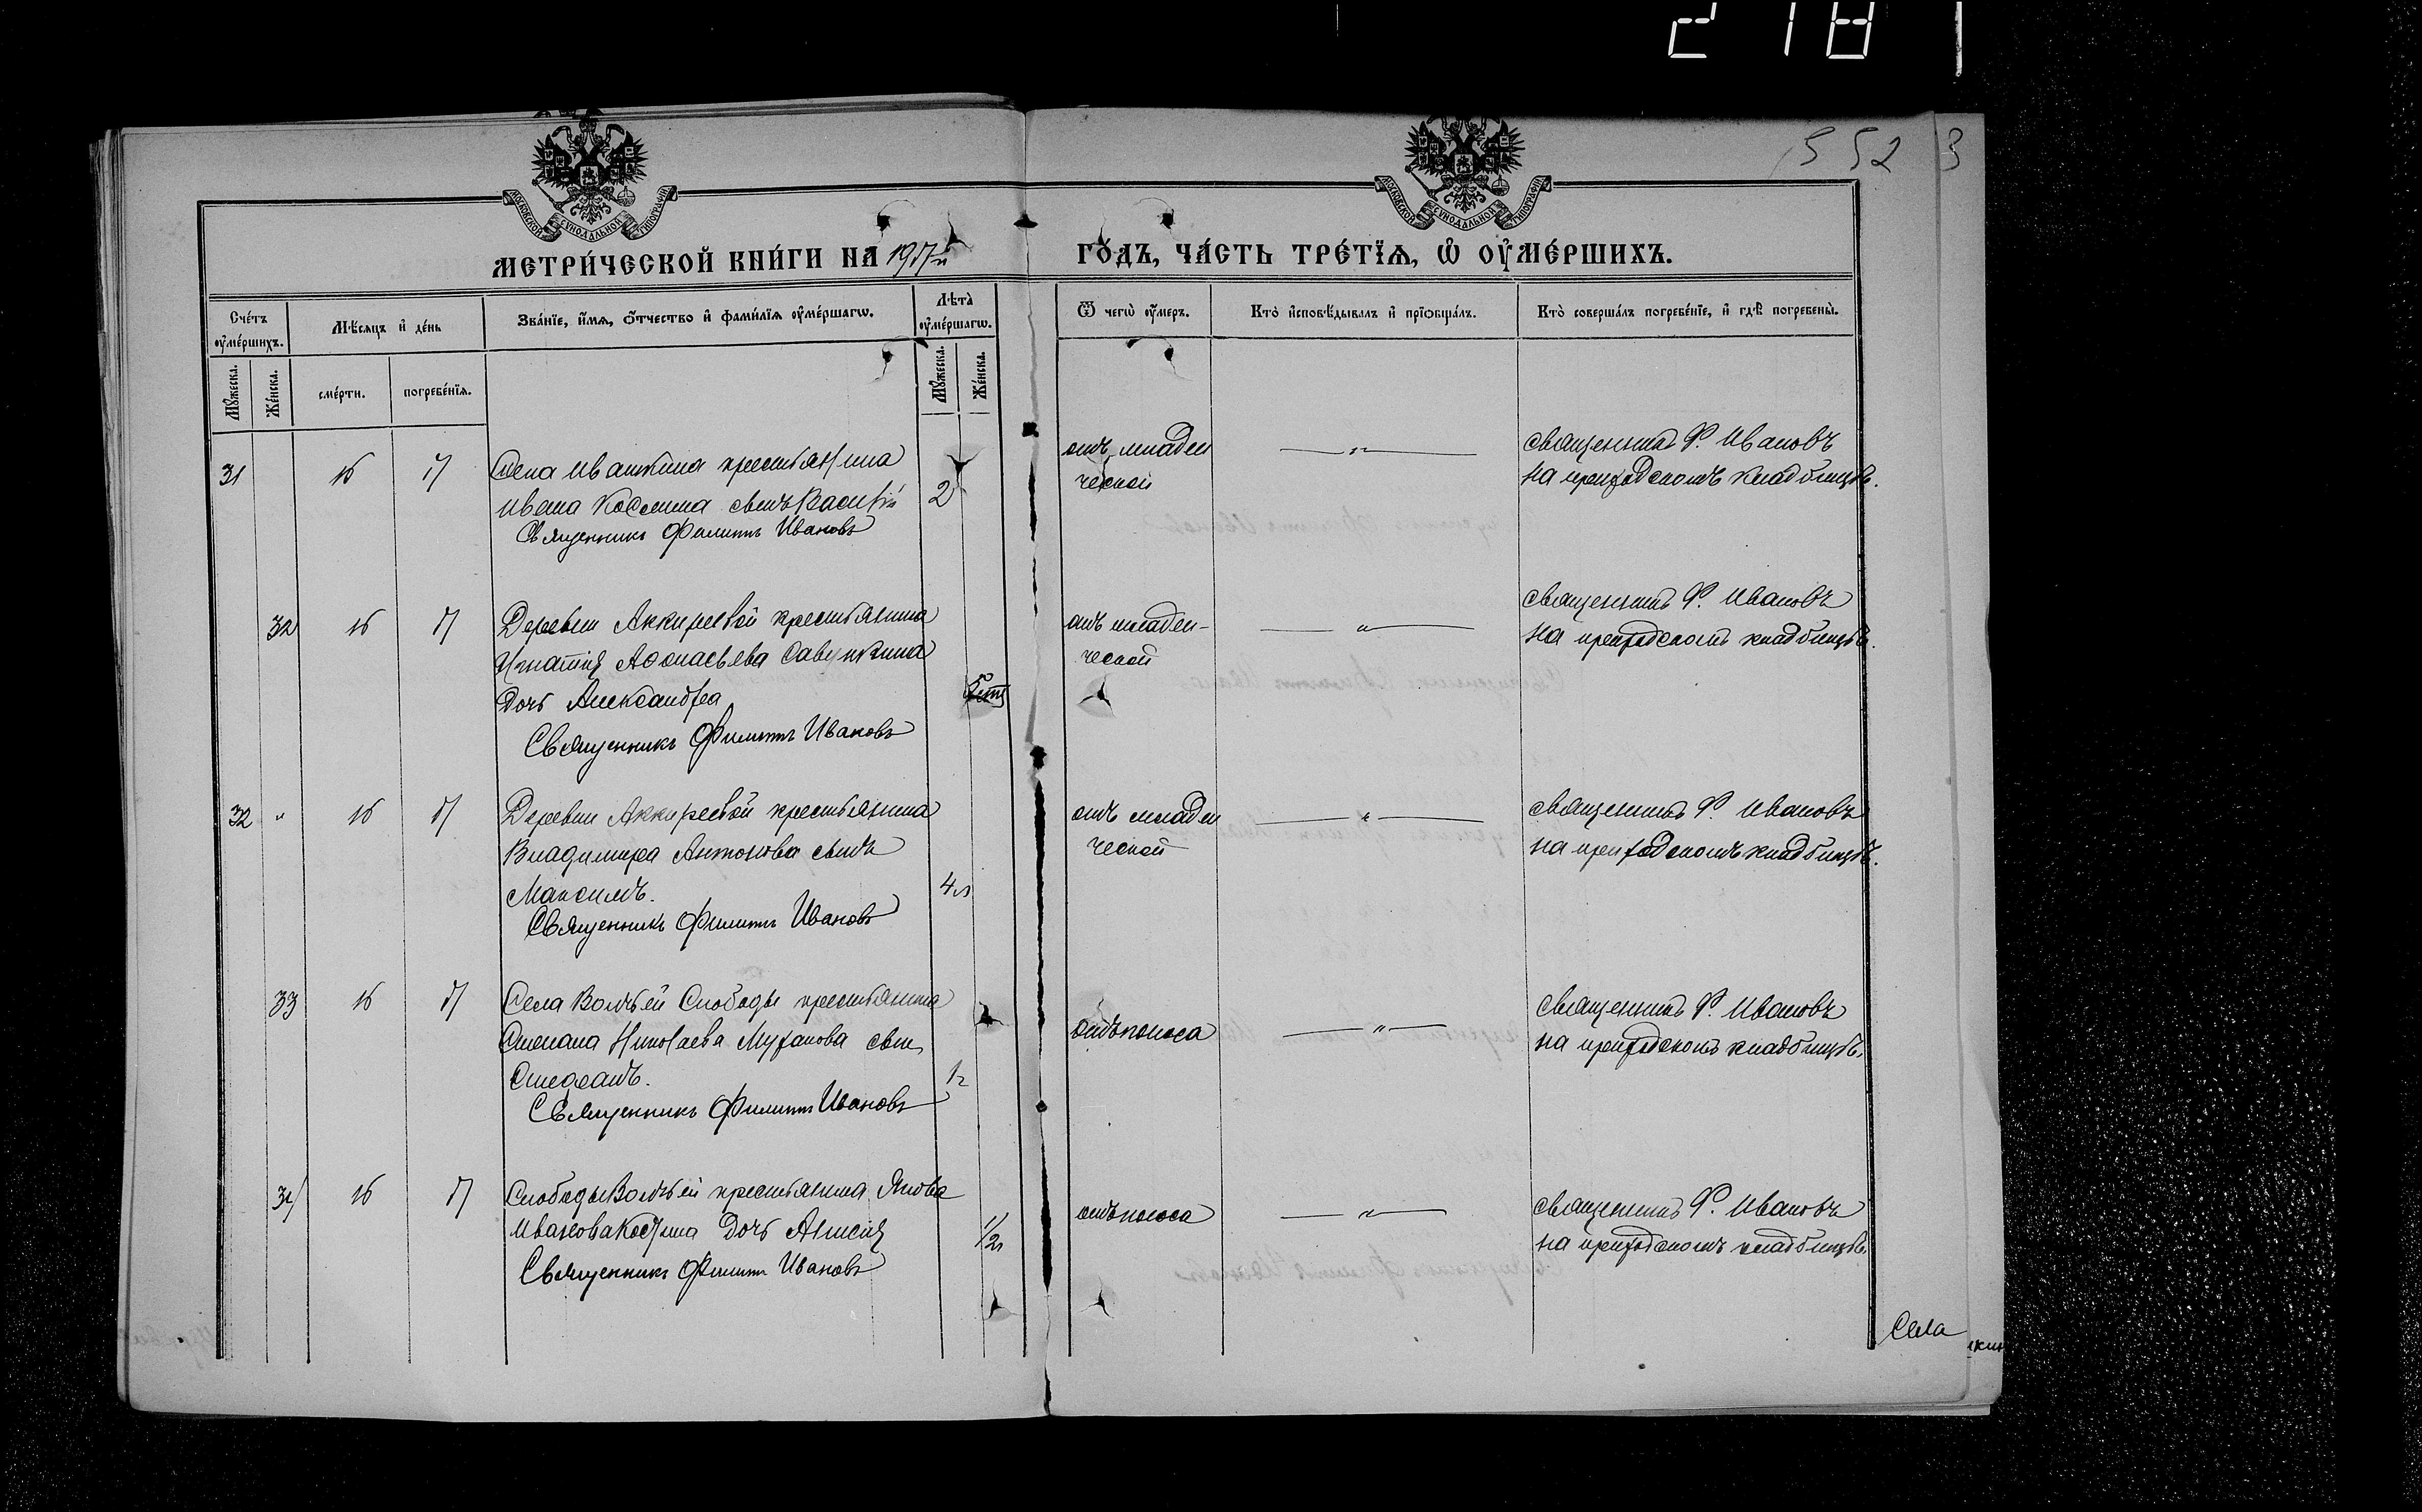 2181
552 3
МОСКОВСКОЙ СѴНОДАЛЬНОЙ ТИПОГРАФІИ
МОСКОВСКОЙ СѴНОДАЛЬНОЙ ТИПОГРАФІИ
МЕТРИ́ЧЕСКОЙ КНИ́ГИ НА 1917й
ГО́ДЪ, ЧА́СТЬ ТРЕ́ТЇѦ, Ѡ҆ ОУ҆МЕ́РШИХЪ.
Сче́тъ оу҆ме́ршихъ.
Мѣ́сяцъ и҆ де́нь
Зва́нїе, и҆́мѧ, ѻ҆́тчество и҆ фами́лїѧ оу҆ме́ршагѡ.
Лѣ́та оу҆ме́ршагѡ.
Ѿ чегѡ̀ оу҆́меръ.
Кто̀ и҆сповѣ́дывалъ и҆ прїѻбща́лъ.
Кто̀ соверша́лъ погребе́нїе, и҆ гдѣ̀ погребены̀.
Мꙋ́жеска.
Же́нска.
сме́рти.
погребе́нїѧ.
Мꙋ́жеска.
Же́нска.
31 16 17 Села Ивашкина крестьянина
Ивана Космина сынъ Василій 2
Священникъ Филиппъ Ивановъ
отъ младен
ческой
священникъ Ф. Ивановъ
на приходскомъ кладбищѣ.
32 16 17 Деревни Аккиреевой крестьянина
Игнатія Афонасьева Савушкина
дочь Александра
Священникъ Филиппъ Ивановъ
отъ младен-
ческой
священникъ Ф. Ивановъ
на приходскомъ кладбищѣ.
32 " 16 17 Деревни Аккиреевой крестьянина
Владимира Антонова сынъ
Максимъ. 4л
Священникъ Филиппъ Ивановъ
отъ младен
ческой
священникъ Ф. Ивановъ
на приходскомъ кладбищѣ.
33 16 17 Села Волчьей Слободы крестьянина
Степана Николаева Муханова сын
Стефанъ. 1г
Священникъ Филиппъ Ивановъ
отъ поноса
священникъ Ф. Ивановъ
на приходскомъ кладбищѣ.
34 16 17 Слободы Волчьей крестьянина Якова
Иванова дочь Анисія 1/2
Священникъ Филиппъ Ивановъ
отъ поноса
священникъ Ф. Ивановъ
на приходскомъ кладбищѣ
Села